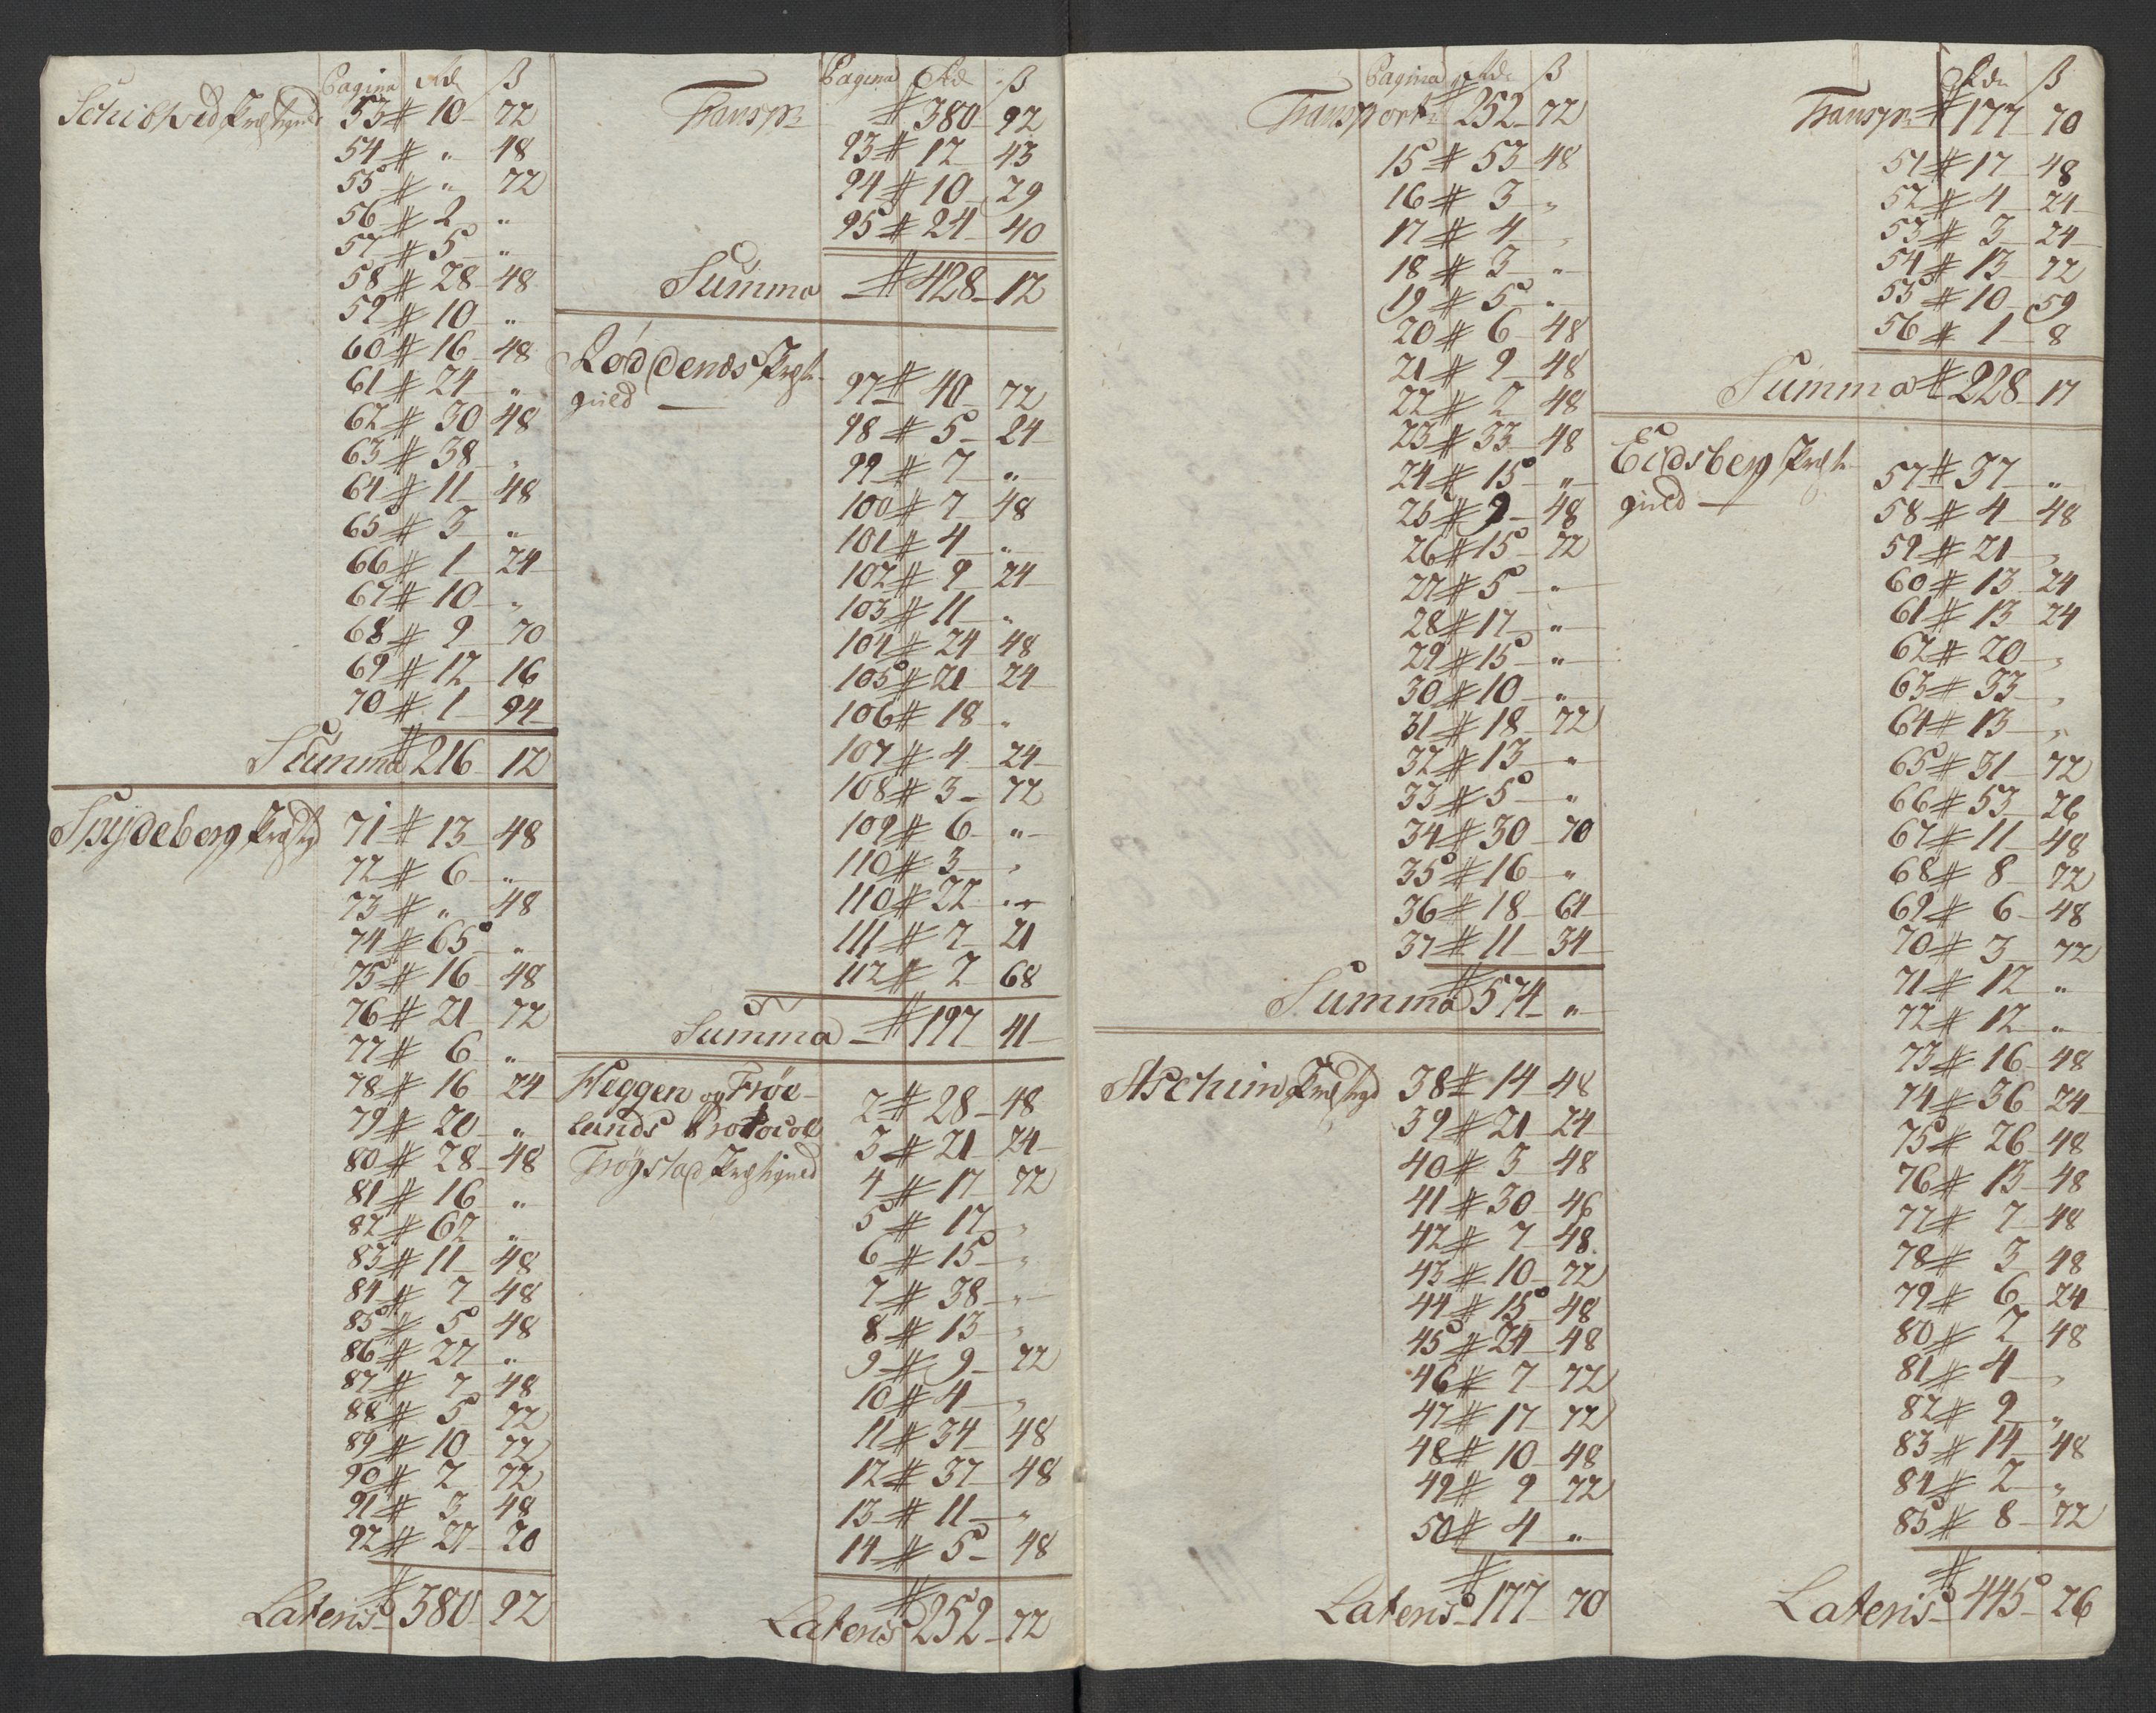 Pagina Rd ß
Schibtved Præstegield 53 # 10 72
54 # " 48
55 # " 72
56 # 2 "
57 # 5 "
58 # 28 48
59 # 10 "
60 # 16 48
61 # 24 "
62 # 30 48
63 # 38 "
64 # 11 48
65 # 3 "
66 # 1 24
67 # 10 "
68 # 9 70
69 # 12 16
70 # 1 94
Summa # 216 12
Spydeberg 71 # 13 48
72 # 6 "
73 # " 48
74 # 65 "
75 # 16 48
76 # 21 72
77 # 6 "
78 # 16 24
79 # 20 "
80 # 28 48
81 # 16 "
82 # 62 "
83 # 11 48
84 # 7 48
85 # 5 48
86 # 27 "
87 # 7 48
88 # 5 72
89 # 10 72
90 # 2 72
91 # 3 48
92 # 27 20
Lateris # 380 92
Pagina Rd ß
Transp: # 380 92
93 # 12 43
94 # 10 29
95 # 24 40
Summa # 428 12
Røddenæs Præste-
gield 97 # 40 72
98 # 5 24
99 # 7 "
100 # 7 48
101 # 4 "
102 # 9 24
103 # 11 "
104 # 24 48
105 # 21 24
106 # 18 "
107 # 4 24
108 # 3 72
109 # 6 "
110 # 3 "
110 # 22 "
111 # 7 21
112 # 2 68
Summa # 197 41
Heggen og Frøe- 2 # 28 48
lands Protocol 3 # 21 24
Trøgstad Præstegield 4 # 17 72
5 # 17 "
6 # 15 "
7 # 38 "
8 # 13 "
9 # 9 72
10 # 4 "
11 # 34 48
12 # 37 48
13 # 11 "
14 # 5 48
Lateris # 252 72
Pagina Rd ß
Transport # 252 72
15 # 53 48
16 # 3 "
17 # 4 "
18 # 3 "
19 # 5 "
20 # 6 48
21 # 9 48
22 # 2 48
23 # 33 48
24 # 15 "
25 # 9 48
26 # 15 72
27 # 5 "
28 # 17 "
29 # 15 "
30 # 10 "
31 # 18 72
32 # 13 "
33 # 5 "
34 # 30 70
35 # 16 "
36 # 18 64
37 # 11 34
Summa # 574 "
Aschim 38 # 14 48
39 # 21 24
40 # 3 48
41 # 30 46
42 # 7 48
43 # 10 72
44 # 15 48
45 # 24 48
46 # 7 72
47 # 17 72
48 # 10 48
49 # 9 72
50 # 4 "
Lateris # 177 70
Rd ß
Transp: # 177 70
51 # 17 48
52 # 4 24
53 # 3 24
54 # 13 72
55 # 10 59
56 # 1 8
Summa # 228 17
Eidsberg Præste-
gield 57 # 37 "
58 # 4 48
59 # 21 "
60 # 13 24
61 # 13 24
62 # 20 "
63 # 33 "
64 # 13 "
65 # 31 72
66 # 53 26
67 # 11 48
68 # 8 72
69 # 6 48
70 # 3 72
71 # 12 "
72 # 12 "
73 # 16 48
74 # 36 24
75 # 26 48
76 # 13 48
77 # 7 48
78 # 3 48
79 # 6 24
80 # 2 48
81 # 4 "
82 # 9 "
83 # 14 48
84 # 2 "
85 # 8 72
Lateris # 445 26